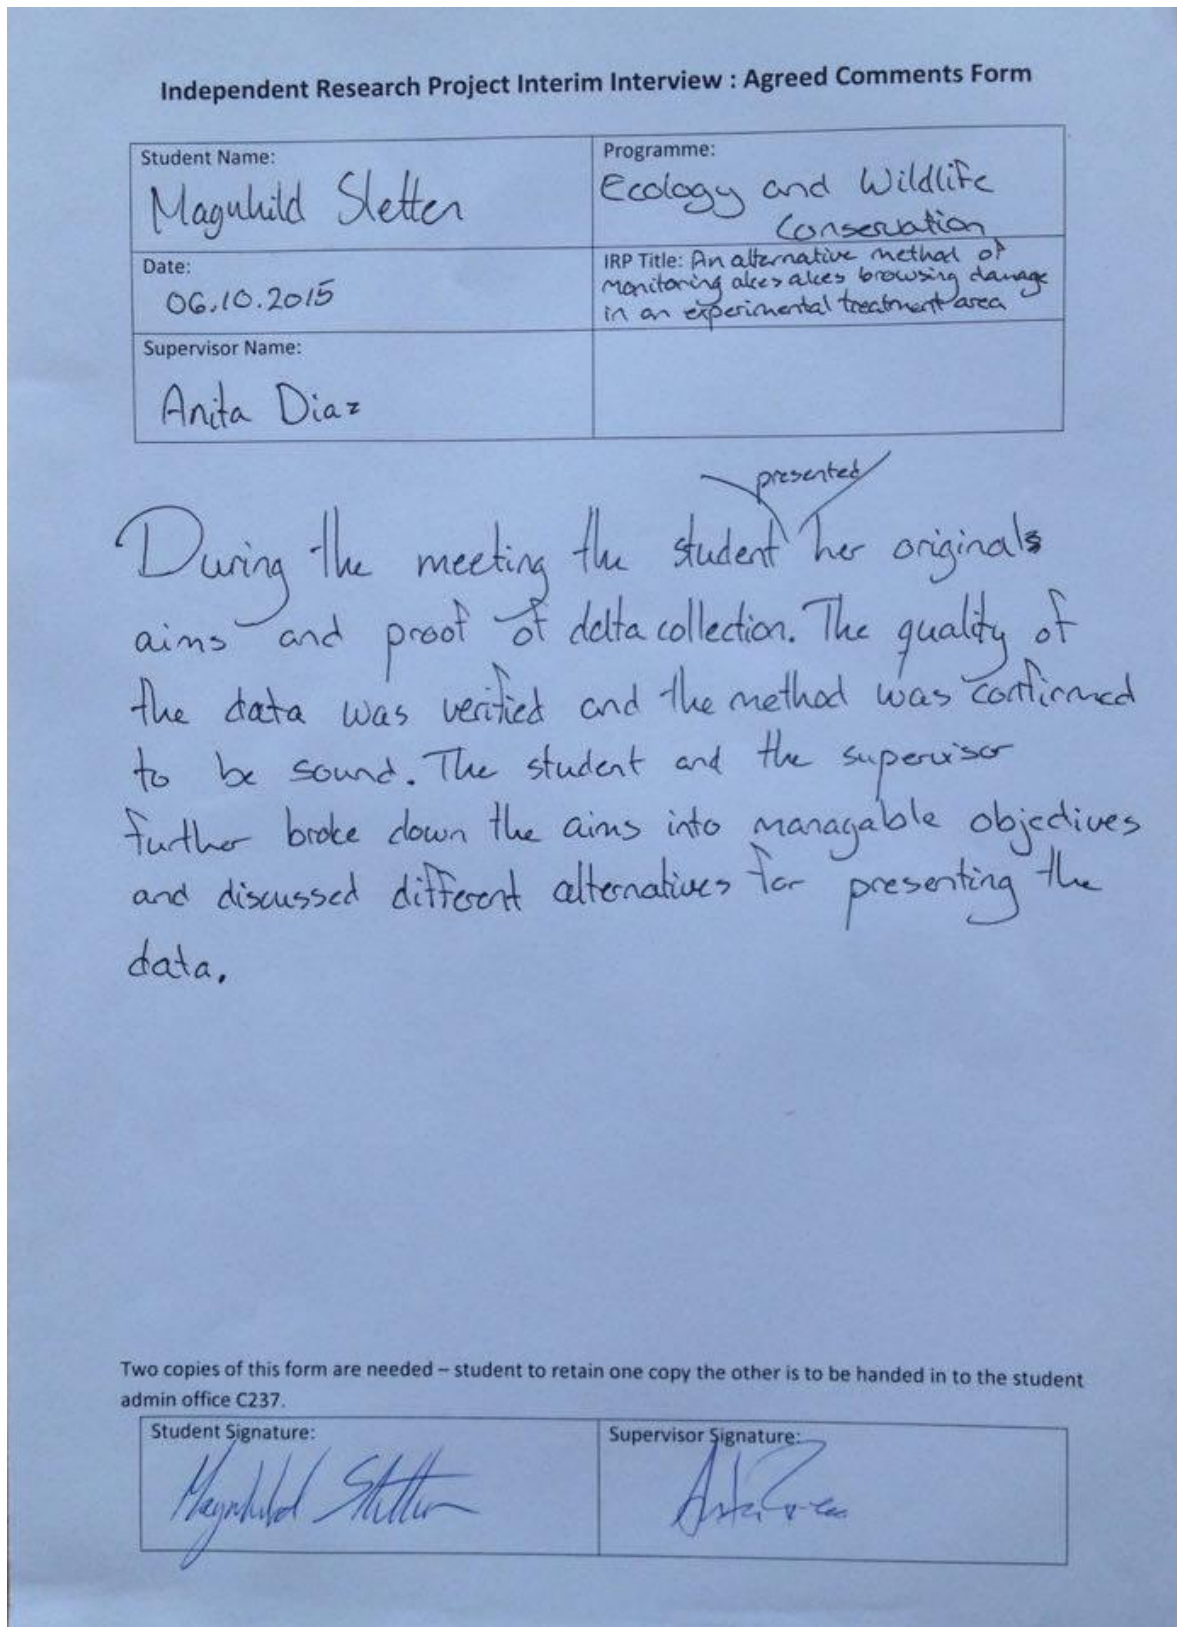 Independent Research Project Interim Interview : Agreed Comments Form
Student Name:
Magnhild Sletten
Programme:
Ecology and Wildlife
Conservation
Date:
06.10.2015
IRP Title: An alternative method of
monitoring alces alces browsing damage
in an experimental treatment area
Supervisor Name:
Anita Diaz
presented
During the meeting the student her originals
aims and proof of data collection. The quality of
the data was verified and the method was confirmed
to be sound. The student and the supervisor
further broke down the aims into managable objectives
and discussed different alternatives for presenting the
data.
Two copies of this form are needed – student to retain one copy the other is to be handed in to the student
admin office C237.
Student Signature:
Magnhild Sletten
Supervisor Signature: